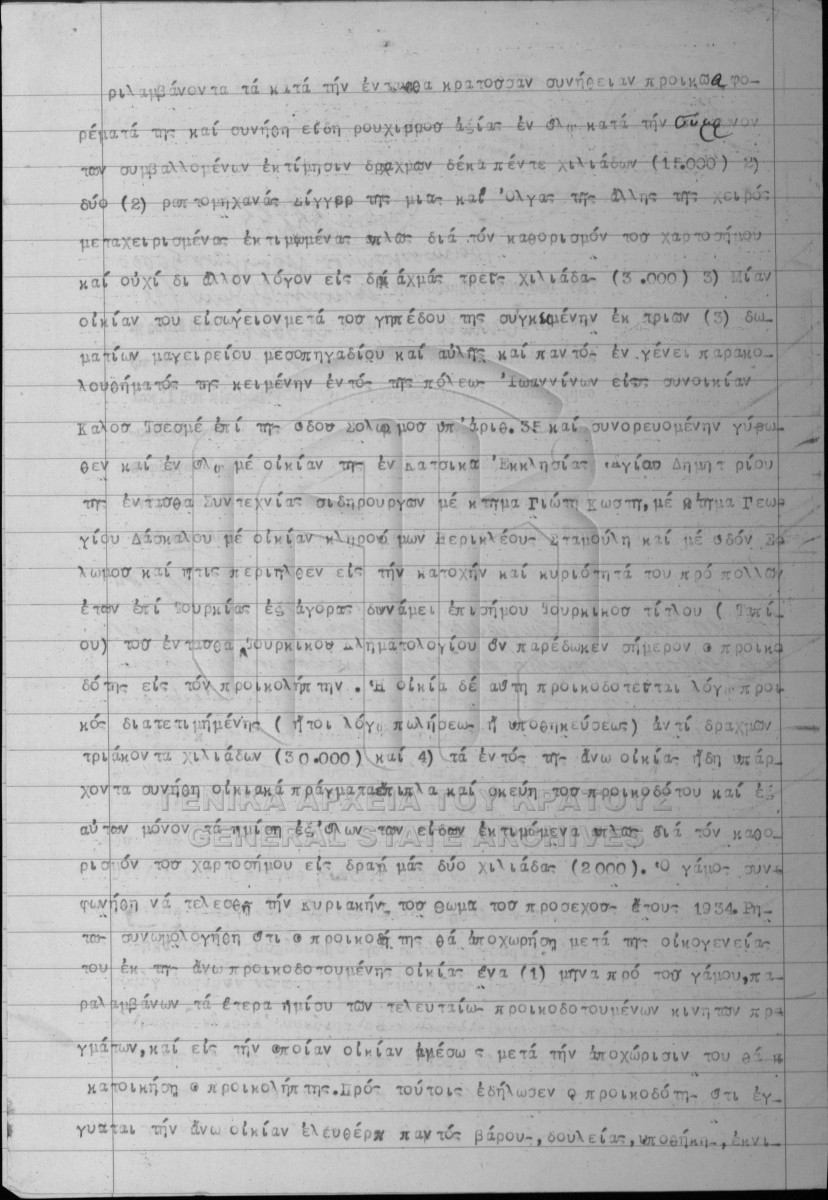 ριλαμβάνοντα τά κατά τήν ένταυθα κρατοσσαν συνήθειαν προικωα φο-
ρέματά της καί συνήθη είδη ρουχισμοσ άξίας έν όλω κατά τήν σύμφωνον
των συμβαλλομένων έκτίμησιν δραχμων δέκα πέντε χιλιάδων (15.000) 2)
δύο (2) ραπτομηχανάς Σίγγερ της μιας καί Όλγας της άλλης της χειρός
μεταχειρισμένας έκτιμωμένας απλως διά τόν καθορισμόν τοσ χαρτοσήμου
καί ούχί δι άλλον λόγον είς δραχμάς τρεις χιλιάδα- (3.000) 3) Μίαν
οίκίαν του είσωγειον μετά τοσ γηπέδου της συγκιμένην έκ τριων (3) δω-
ματίων μαγειρείου μεσοπηγαδίου καί αύλής καί παντό- έν γένει παρακο-
λουθήματός της κειμένην έντό- τής πόλεω- Ίωαννίνων είς συνοικίαν
Καλοσ Τσεσμέ έπί της οδοσ Σολωμοσ υπ'άριθ.35 καί συνορευομένην γύρω-
θεν καί έν όλω μέ οίκίαν της έν Κατσικα Έκκλησίας Άγίου Δημητρίου
της ένταυθα Συντεχνίας σιδηρουργων μέ κτημα Γιώτη Κωστη, μέ κτημα Γεωρ
γίου Δάσκαλου μέ οίκίαν κληρονόμων Περικλέου- Σταμούλη καί μέ οδόν Σο
λωμοσ καί ήτις περιηλθεν είς τήν κατοχήν καί κυριότητά του πρό πολλων
έτων έπί Τουρκίας έξ άγορας δυνάμει έπισήμου Τουρκικοσ τίτλου ( Ταπί
ου) τοσ ένταυθα Τουρκικου Κτηματολογίου όν παρέδωκεν σήμερον ο προικο
δότης είς τόν προικολήπτην . Ή οίκία δέ αυτη προικοδοτειται λόγω προι
κός διατετιμημένης ( ήτοι λόγω πωλήσεω- ή υποθηκεύσεως) άντί δραχμων
τριάκοντα χιλιάδων (30.000) καί 4) τά έντός τη- άνω οίκία- ήδη υπάρ-
χοντα συνήθη οίκιακά πράγματα έπιπλα καί σκεύη τοσ προικοδότου καί έξ
αύτων μόνον τά ημίση έξ'όλων των είδων έκτιμώμενα απλως διά τόν καθο-
ρισμόν τοσ χαρτοσήμου είς δραχμάς δύο χιλιάδας (2000). Ό γάμο- συνε
φωνήθη νά τελεσθη τήν Κυριακήν τοσ Θωμα τοσ προσεχοσ- έτους 1934. Ρη-
τω- συνωμολογήθη ότι ο προικοδότης θά άποχωρήση μετά της οίκογενείας
του έκ της άνω προικοδοτουμένης οίκίας ένα (1) μηνα πρό τοσ γάμου, πα-
ραλαμβάνων τά έτερα ημίσυ των τελευταίω- προικοδοτουμένων κινητων πρα
γμάτων, καί είς τήν οποίαν οίκίαν άμέσως μετά τήν άποχώρισιν του θά
κατοικήση ο προικολήπτης. Πρός τούτοις έδήλωσεν ο προικοδότη- ότι έγ-
γυαται τήν άνω οίκίαν έλευθέραν παντός βάρου-, δουλείας, υποθήκη-, έκνι-
ΓΕΝΙΚΑ ΑΡΧΕΙΑ ΤΟΥ ΚΡΑΤΟΥΣ
GENERAL STATE ARCHIVES